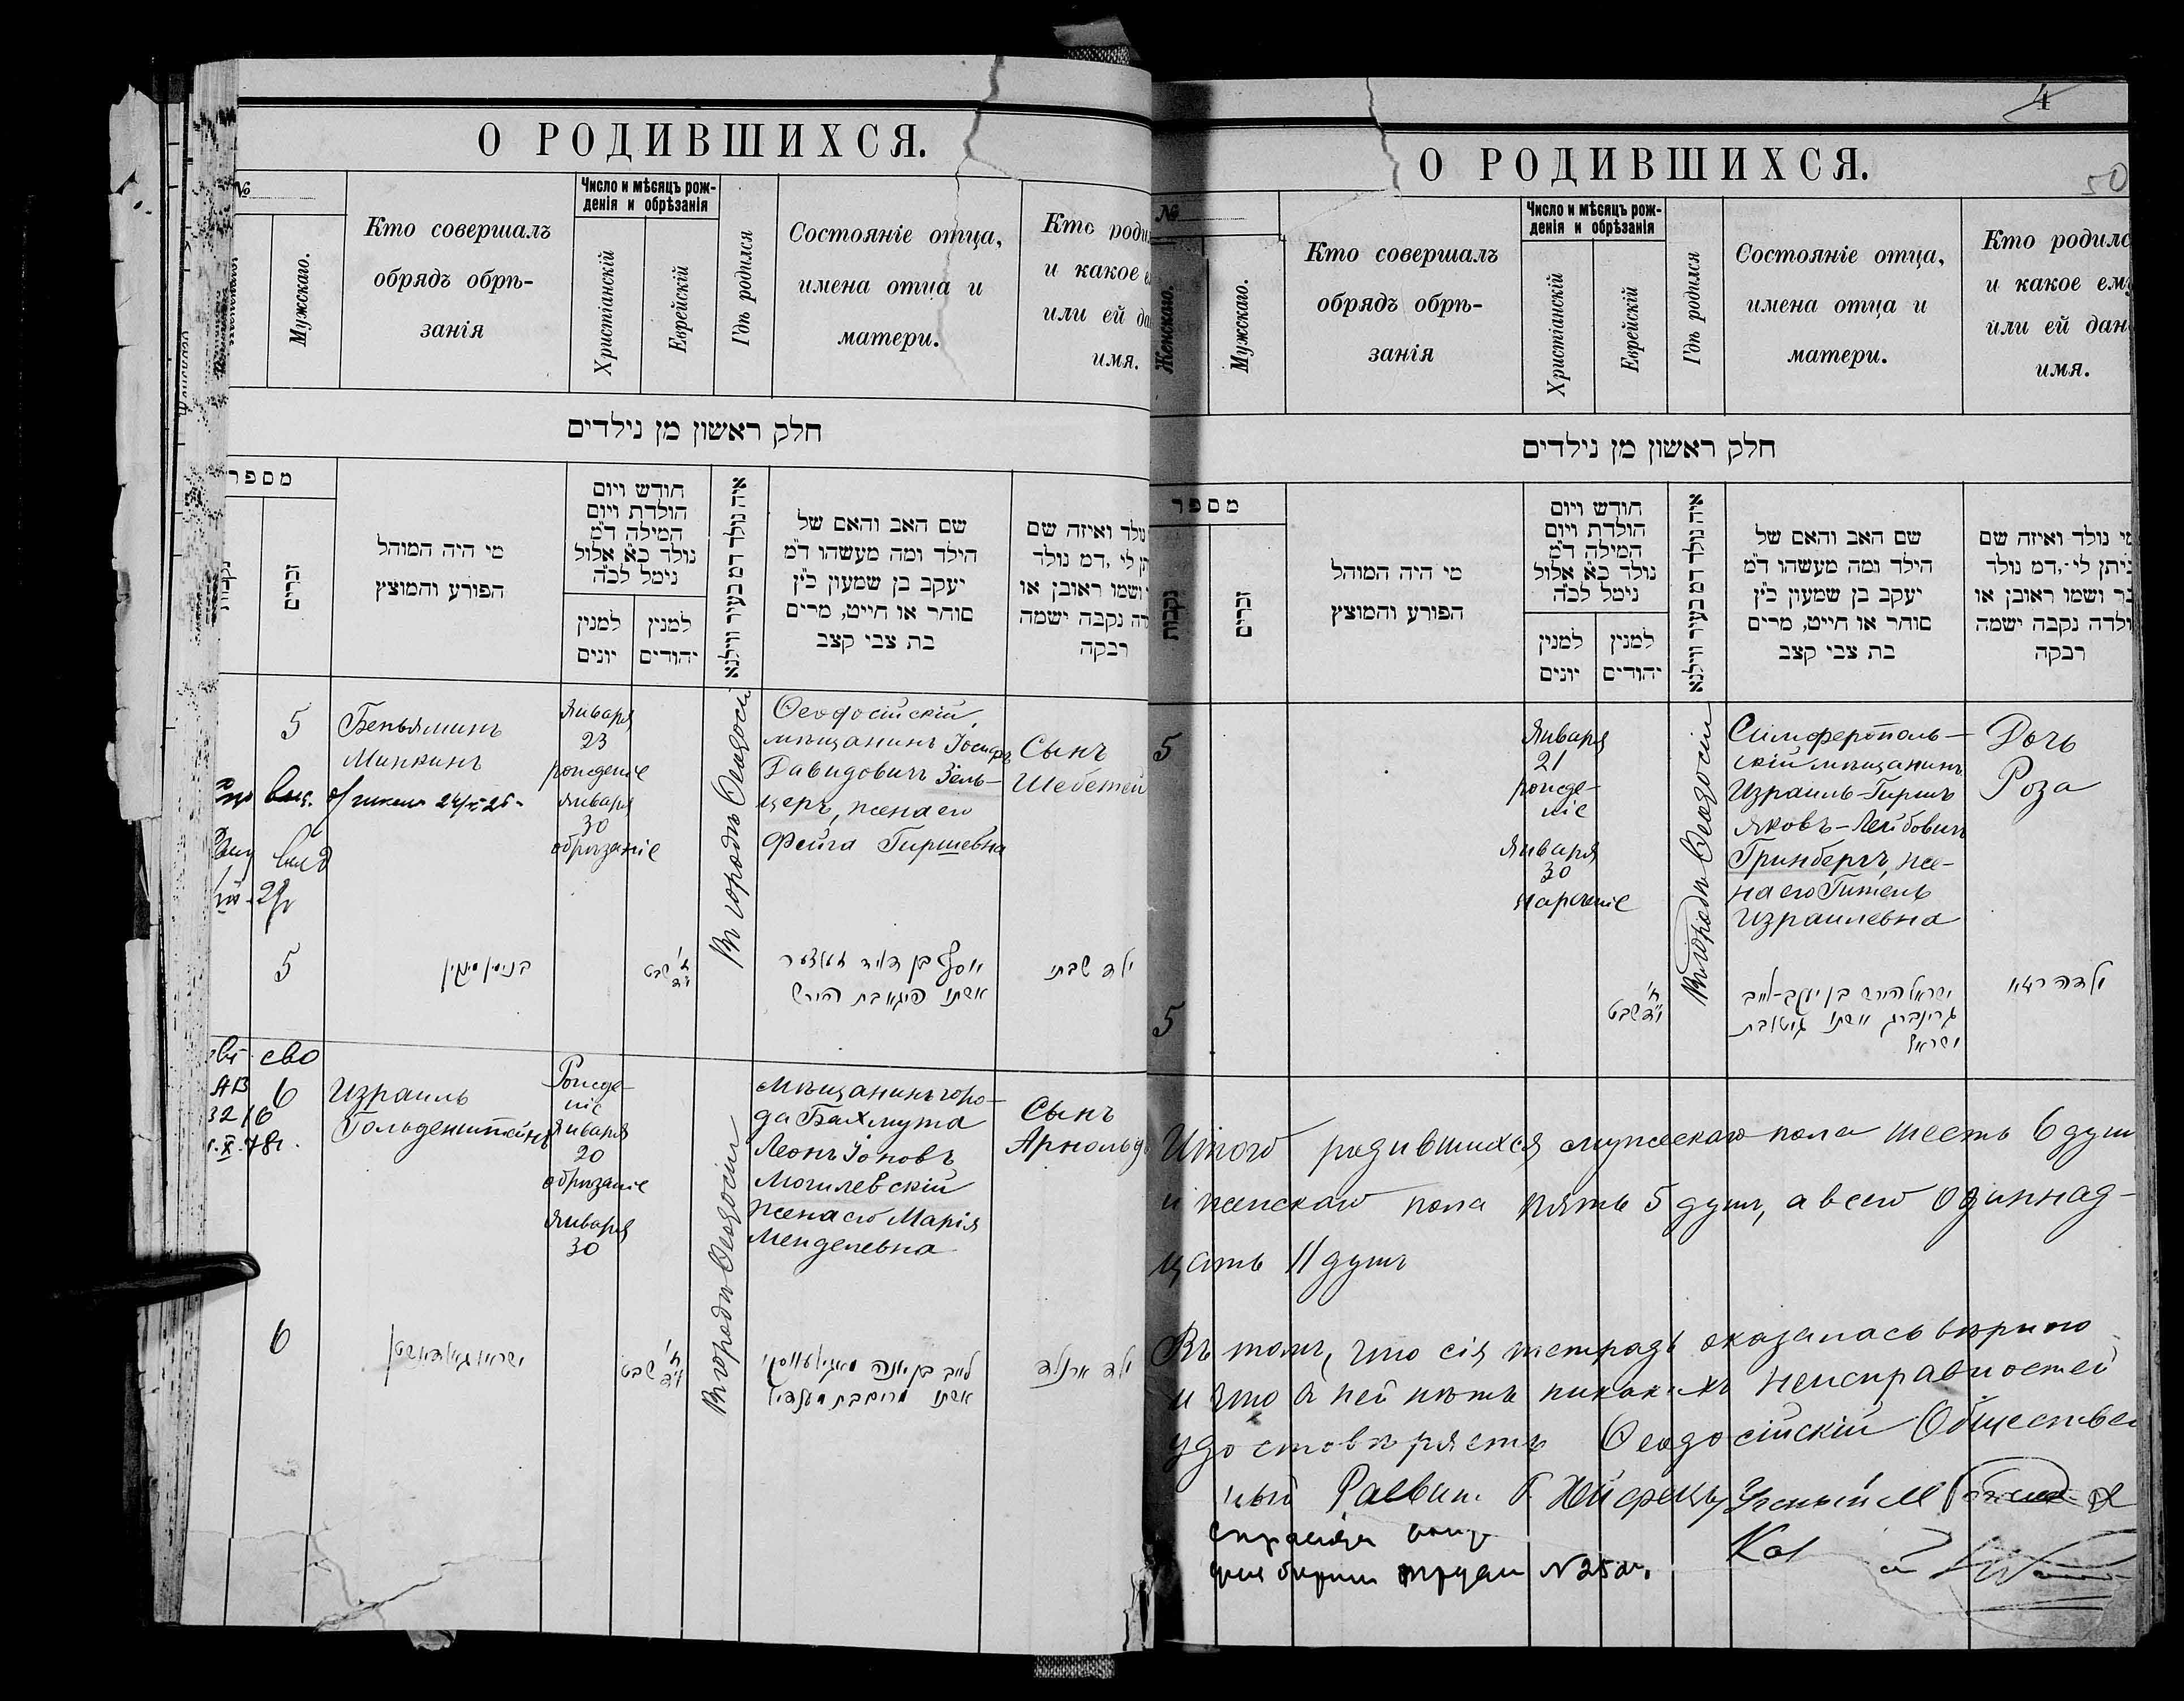 О РОДИВШИХСЯ.
№
Мужскаго.
Кто совершалъ
обрядъ обрѣ-
занія
Число и мѣсяцъ рож-
денія и обрѣзанія
Христіанскій
Еврейскій
Гдѣ родился
Состояніе отца,
имена отца и
матери.
Кто
и какое
или ей
имя.
חלק ראשון מן נילדים
מספר
זכרים
מי היה המוהל
הפורע והמוצץ
חודש ויום
הולדת ויום
המילה ד״מ
נולד כ״א אלול
נימל לכ״ה
למנין
יונים
למנין
יהודים
איה נולד דמ בעיר ווילנא
שם האב והאם של
הילד ומה מעשהו ד״מ
יעקב בן שמעון כ״ץ
סוחר או חייט, מרים
בת צבי קצב
נולד ואיזה שם
לי, דמ נולד
ושמו ראובן או
נקבה ישמה
רבקה
5
Беньяминъ
Минкинъ
Января
23
рожденіе
Января
30
обрѣзаніе
Въ городѣ Ѳеодосіи
Ѳеодосійскій
мѣщанинъ Іосифъ
Давидовичъ Зель-
церъ, жена его
Фейга Гиршевна
Сынъ
Шебетей
5
בנימין מינקין
שבט
יוסף בן דוד זעלצער
אשתו פיגא בת הירש
ילד שבתי
сво
6
Израиль
Гольденштейнъ
Рожде-
ніе
Января
20
обрѣзаніе
Января
30
Въ городѣ Ѳеодосіи
Мѣщанинъ горо-
да Бахмута
Леонъ Іоновъ
Могилевскій
жена его Марія
Менделевна
Сынъ
Арнольдъ
6
ישראל גאלדענשטיין
שבט
לייב בן יונה מאגילעווסקי
אשתו מרים בת מענדיל
ילד ארנולד
4
50
О РОДИВШИХСЯ.
№
Женскаго.
Мужскаго.
Кто совершалъ
обрядъ обрѣ-
занія
Число и мѣсяцъ рож-
денія и обрѣзанія
Христіанскій
Еврейскій
Гдѣ родился
Состояніе отца,
имена отца и
матери.
Кто родилс
и какое ему
или ей дан
имя.
חלק ראשון מן נילדים
מספר
נקבות
זכרים
מי היה המוהל
הפורע והמוצץ
חודש ויום
הולדת ויום
המילה ד״מ
נולד כ״א אלול
נימל לכ״ה
למנין
יונים
למנין
יהודים
איה נולד דמ בעיר ווילנא
שם האב והאם של
הילד ומה מעשהו ד״מ
יעקב בן שמעון כ״ץ
סוחר או חייט, מרים
בת צבי קצב
מי נולד ואיזה שם
ניתן לי, דמ נולד
ושמו ראובן או
ילדה נקבה ישמה
רבקה
5
Января
21
рожде-
ніе
Января
30
нареченіе
Въ городѣ Ѳеодосіи
Симферополь-
скій мѣщанинъ
Израиль-Гиршъ
Яковъ-Лейбовичъ
Гринбергъ, же-
на его Гитель
Израилевна
Дочь
Роза
5
שבט
ישראל הירש בן יעקב-לייב
גרינברג אשתו גיטל בת
ישראל
ילדה רוזא
Итого родившихся мужескаго пола шесть 6 душ
и женскаго пола пять 5 душъ, а всего одиннад-
цать 11 душъ
Въ томъ, что сія тетрадь оказалась вѣрною
и что въ ней нѣтъ никакихъ неисправностей
удостовѣряетъ Ѳеодосійскій Обществен
ный Раввин